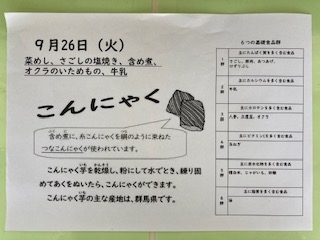 9月26日（火）
菜めし、さごしの塩焼き、含め煮、
オクラのいためもの、牛乳
こんにゃく
含め煮に、糸こんにゃくを綱のように束ねた
つなこんにゃくが使われています。
こんにゃく芋を乾燥し、粉にして水でとき、練り固
めてあくをぬいたら、こんにゃくができます。
こんにゃく芋の主な産地は、群馬県です。
6つの基礎食品群
主にたんぱく質を多く含む食品
1群
さごし、鶏肉、あつあげ、
主にカルシウムを多く含む食品
2群
牛乳
主にカロテンを多く含む食品
3群
人参、三度豆、オクラ
主にビタミンCを多く含む食品
4群
玉ねぎ
主に炭水化物を多く含む食品
5群
精白米、じゃがいも、砂糖
主に脂質を多く含む食品
6群
油